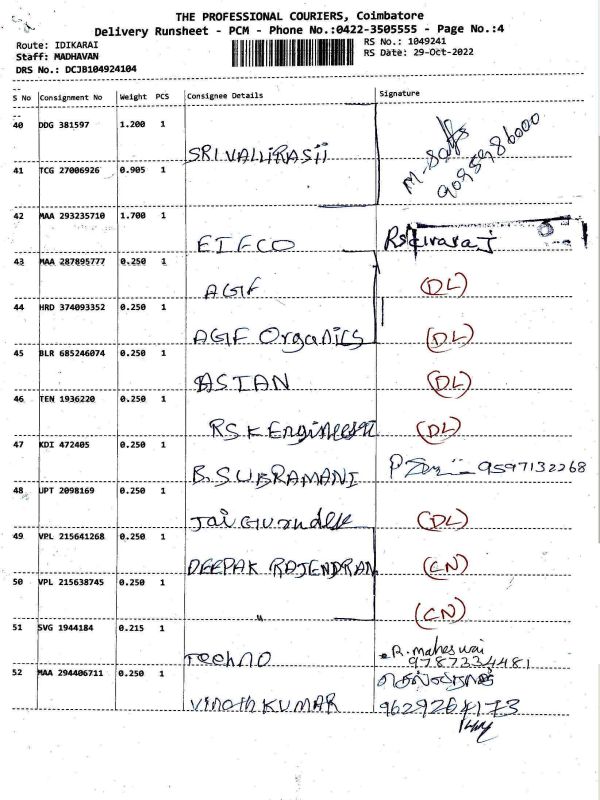 THE PROFESSIONAL COURIERS, Coimbatore
Delivery Runsheet - PCM - Phone No.:0422-3505555 - Page No.:4
Route: IDIKARAI
RS No.: 1049241
Staff: MADHAVAN
RS Date: 29-Oct-2022
DRS No.: DCJB104924104
S No Consignment No Weight PCS Consignee Details Signature
40 DDG 381597 1.200 1
SRIVALLIRASII
41 TCG 27006926 0.905 1
42 MAA 293235710 1.700 1
EIFCO
43 MAA 287895777 0.250 1
AGIF (DL)
44 HRD 374093352 0.250 1
AGIF Organics (DL)
45 BLR 685246074 0.250 1
ASIAN (DL)
46 TEN 1936220 0.250 1
RSK (DL)
47 KDI 472405 0.250 1
B.SUBRAMANI 9597132268
48 UPT 2098169 0.250 1
(DL)
49 VPL 215641268 0.250 1
DEEPAK RAJENDRAN (CN)
50 VPL 215638745 0.250 1
" (CN)
51 SVG 1944184 0.215 1
R.
Techno 9787234481
52 MAA 294406711 0.250 1
Vinoth KUMAR 9629264173